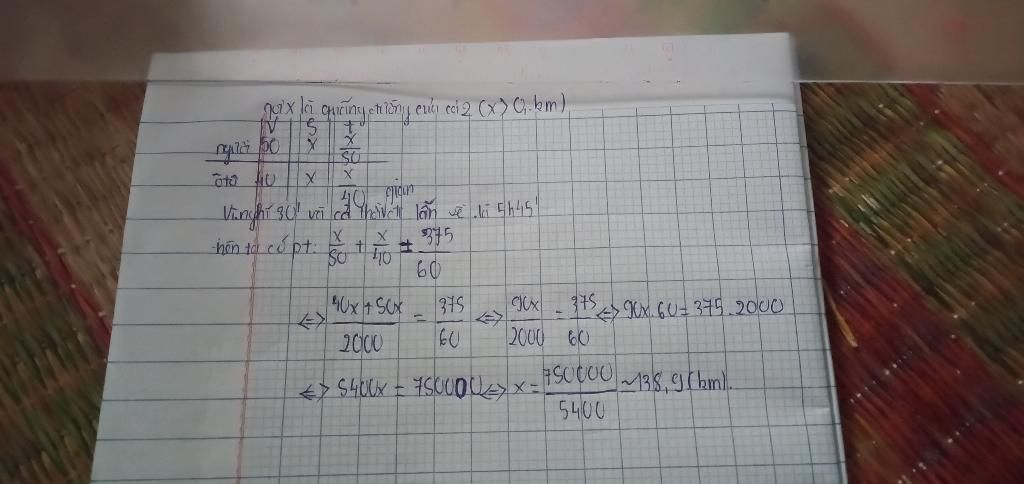 gọi x là quãng đường của cả 2 (x > 0, km)
V | S | t
người | 50 | x | x/50
ôtô | 40 | x | x/40
Vì nghỉ 30' và cả thời gian lẫn về là 5h45'
nên ta có pt: x/50 + x/40 = 375/60
<=> (40x+50x)/2000 = 375/60 <=> 90x/2000 = 375/60 <=> 90x.60 = 375.2000
<=> 5400x = 750000 <=> x = 750000/5400 ~ 138,9 (km).